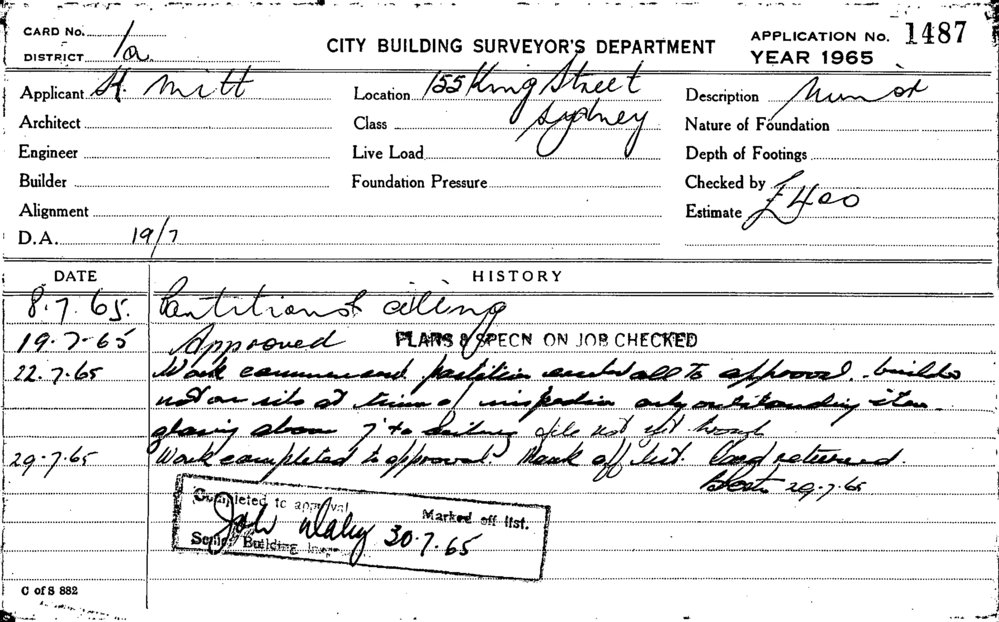 CARD No.
DISTRICT 1a.
CITY BUILDING SURVEYOR'S DEPARTMENT
APPLICATION No. 1487
YEAR 1965
Applicant H. Mitt
Location 155 King Street
Sydney
Description
Architect
Class
Nature of Foundation
Engineer
Live Load
Depth of Footings
Builder
Foundation Pressure
Checked by
Alignment
Estimate £400
D.A. 19/7
DATE HISTORY
8.7.65. Partitions & ceiling
19.7.65 Approved PLANS & SPECN ON JOB CHECKED
22.7.65 Work commenced. partition erected all to approval. builder
not on site at time of inspection only outstanding item
glazing above 7' to ceiling file not yet
29.7.65 Work completed to approval. Mark off list. Card returned.
29.7.65
Completed to approval
Marked off list.
John Daley 30.7.65
Senior Building
C of S 882